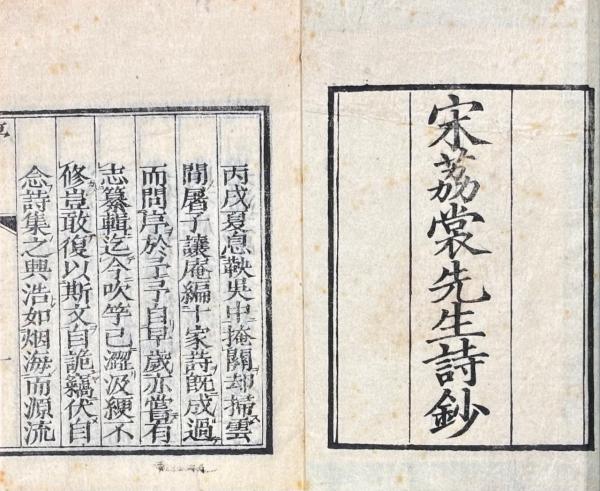 宋荔裳先生詩鈔
丙戌夏息鞅吳中掩關却掃雲
間屠子讓庵編十家詩既成過
而問序於予予自早歲亦嘗有
志纂輯迄今吹竽已澀汲綆不
修豈敢復以斯文自詭竊伏自
念詩集之興浩如烟海而源流